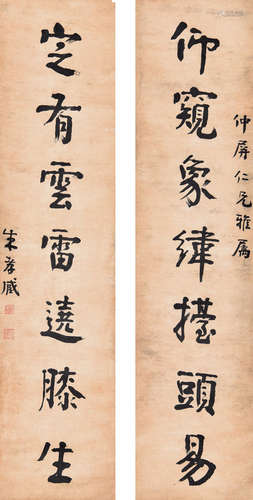 仲屏仁兄雅屬
仰窺象緯擡頭易
定有雲雷遶膝生
朱孝臧